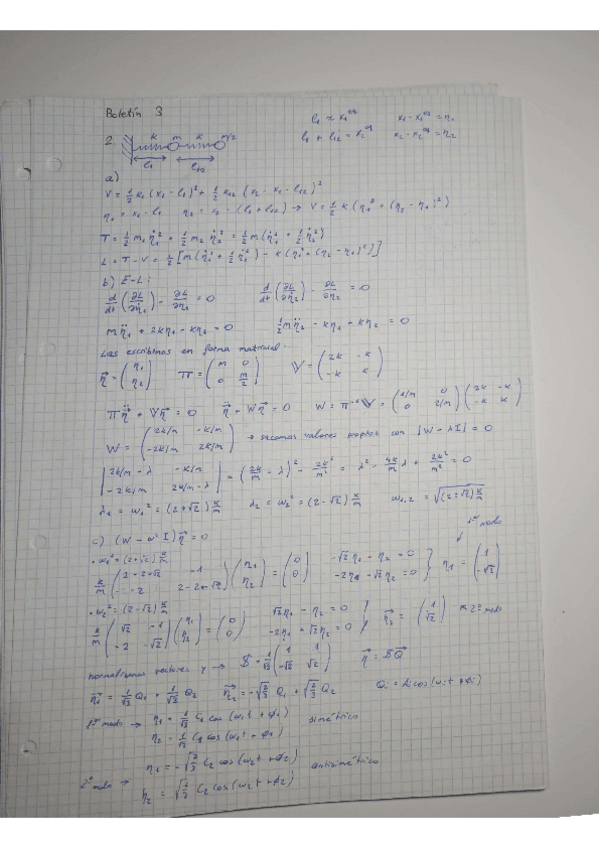 Boletín 3
l₁ ≈ x₁^eq    x₁ - x₁^eq = η₁
l₁ + l₁₂ = x₂^eq    x₂ - x₂^eq = η₂
2. k m k m/2
l₁ l₁₂
a)
V = 1/2 k₁ (x₁ - l₁)² + 1/2 k₁₂ (x₂ - x₁ - l₁₂)²
η₁ = x₁ - l₁    η₂ = x₂ - (l₁ + l₁₂) → V = 1/2 k (η₁² + (η₂ - η₁)²)
T = 1/2 m₁ η̇₁² + 1/2 m₂ η̇₂² = 1/2 m (η̇₁² + 1/2 η̇₂²)
L = T - V = 1/2 [m(η̇₁² + 1/2 η̇₂²) - k(η₁² + (η₂ - η₁)²)]
b) E-L:
d/dt (∂L/∂η̇₁) - ∂L/∂η₁ = 0    d/dt (∂L/∂η̇₂) - ∂L/∂η₂ = 0
mη̈₁ + 2kη₁ - kη₂ = 0    1/2 mη̈₂ - kη₁ + kη₂ = 0
Las escribimos en forma matricial:
η⃗ = (η₁ ; η₂)    𝕋 = (m 0 ; 0 m/2)    𝕍 = (2k -k ; -k k)
𝕋η̈⃗ + 𝕍η⃗ = 0    η̈⃗ + Wη⃗ = 0    W = 𝕋⁻¹𝕍 = (1/m 0 ; 0 2/m) (2k -k ; -k k)
W = (2k/m -k/m ; -2k/m 2k/m) → sacamos valores propios con |W - λI| = 0
|2k/m - λ -k/m ; -2k/m 2k/m - λ| = (2k/m - λ)² - 2k²/m² = λ² - 4k/m λ + 2k²/m² = 0
λ₁ = ω₁² = (2+√2) k/m    λ₂ = ω₂² = (2-√2) k/m    ω₁,₂ = √((2±√2) k/m)
c) (W - ω² I) η⃗ = 0
1er modo
• ω₁² = (2+√2) k/m
k/m (2-2+√2 -1 ; -2 2-2+√2) (η₁ ; η₂) = (0 ; 0)    -√2η₁ - η₂ = 0    -2η₁ - √2η₂ = 0 } η₁ = (1 ; -√2)
• ω₂² = (2-√2) k/m
k/m (√2 -1 ; -2 -√2) (η₁ ; η₂) = (0 ; 0)    √2η₁ - η₂ = 0    -2η₁ + √2η₂ = 0 } η⃗₂ = (1 ; √2) 2º modo
normalizamos vectores y → 𝕊 = 1/√3 (1 1 ; -√2 √2)    η⃗ = 𝕊Q⃗
η⃗₁ = 1/√3 Q₁ + 1/√3 Q₂    η⃗₂ = -√(2/3) Q₁ + √(2/3) Q₂    Qᵢ = Aᵢcos(ωᵢt + φᵢ)
1er modo → η₁ = 1/√3 C₁ cos(ω₁t + φ₁)    simétrico
η₂ = 1/√3 C₂ cos(ω₁t + φ₁)
2º modo → η₁ = -√(2/3) C₂ cos(ω₂t + φ₂)    antisimétrico
η₂ = √(2/3) C₂ cos(ω₂t + φ₂)